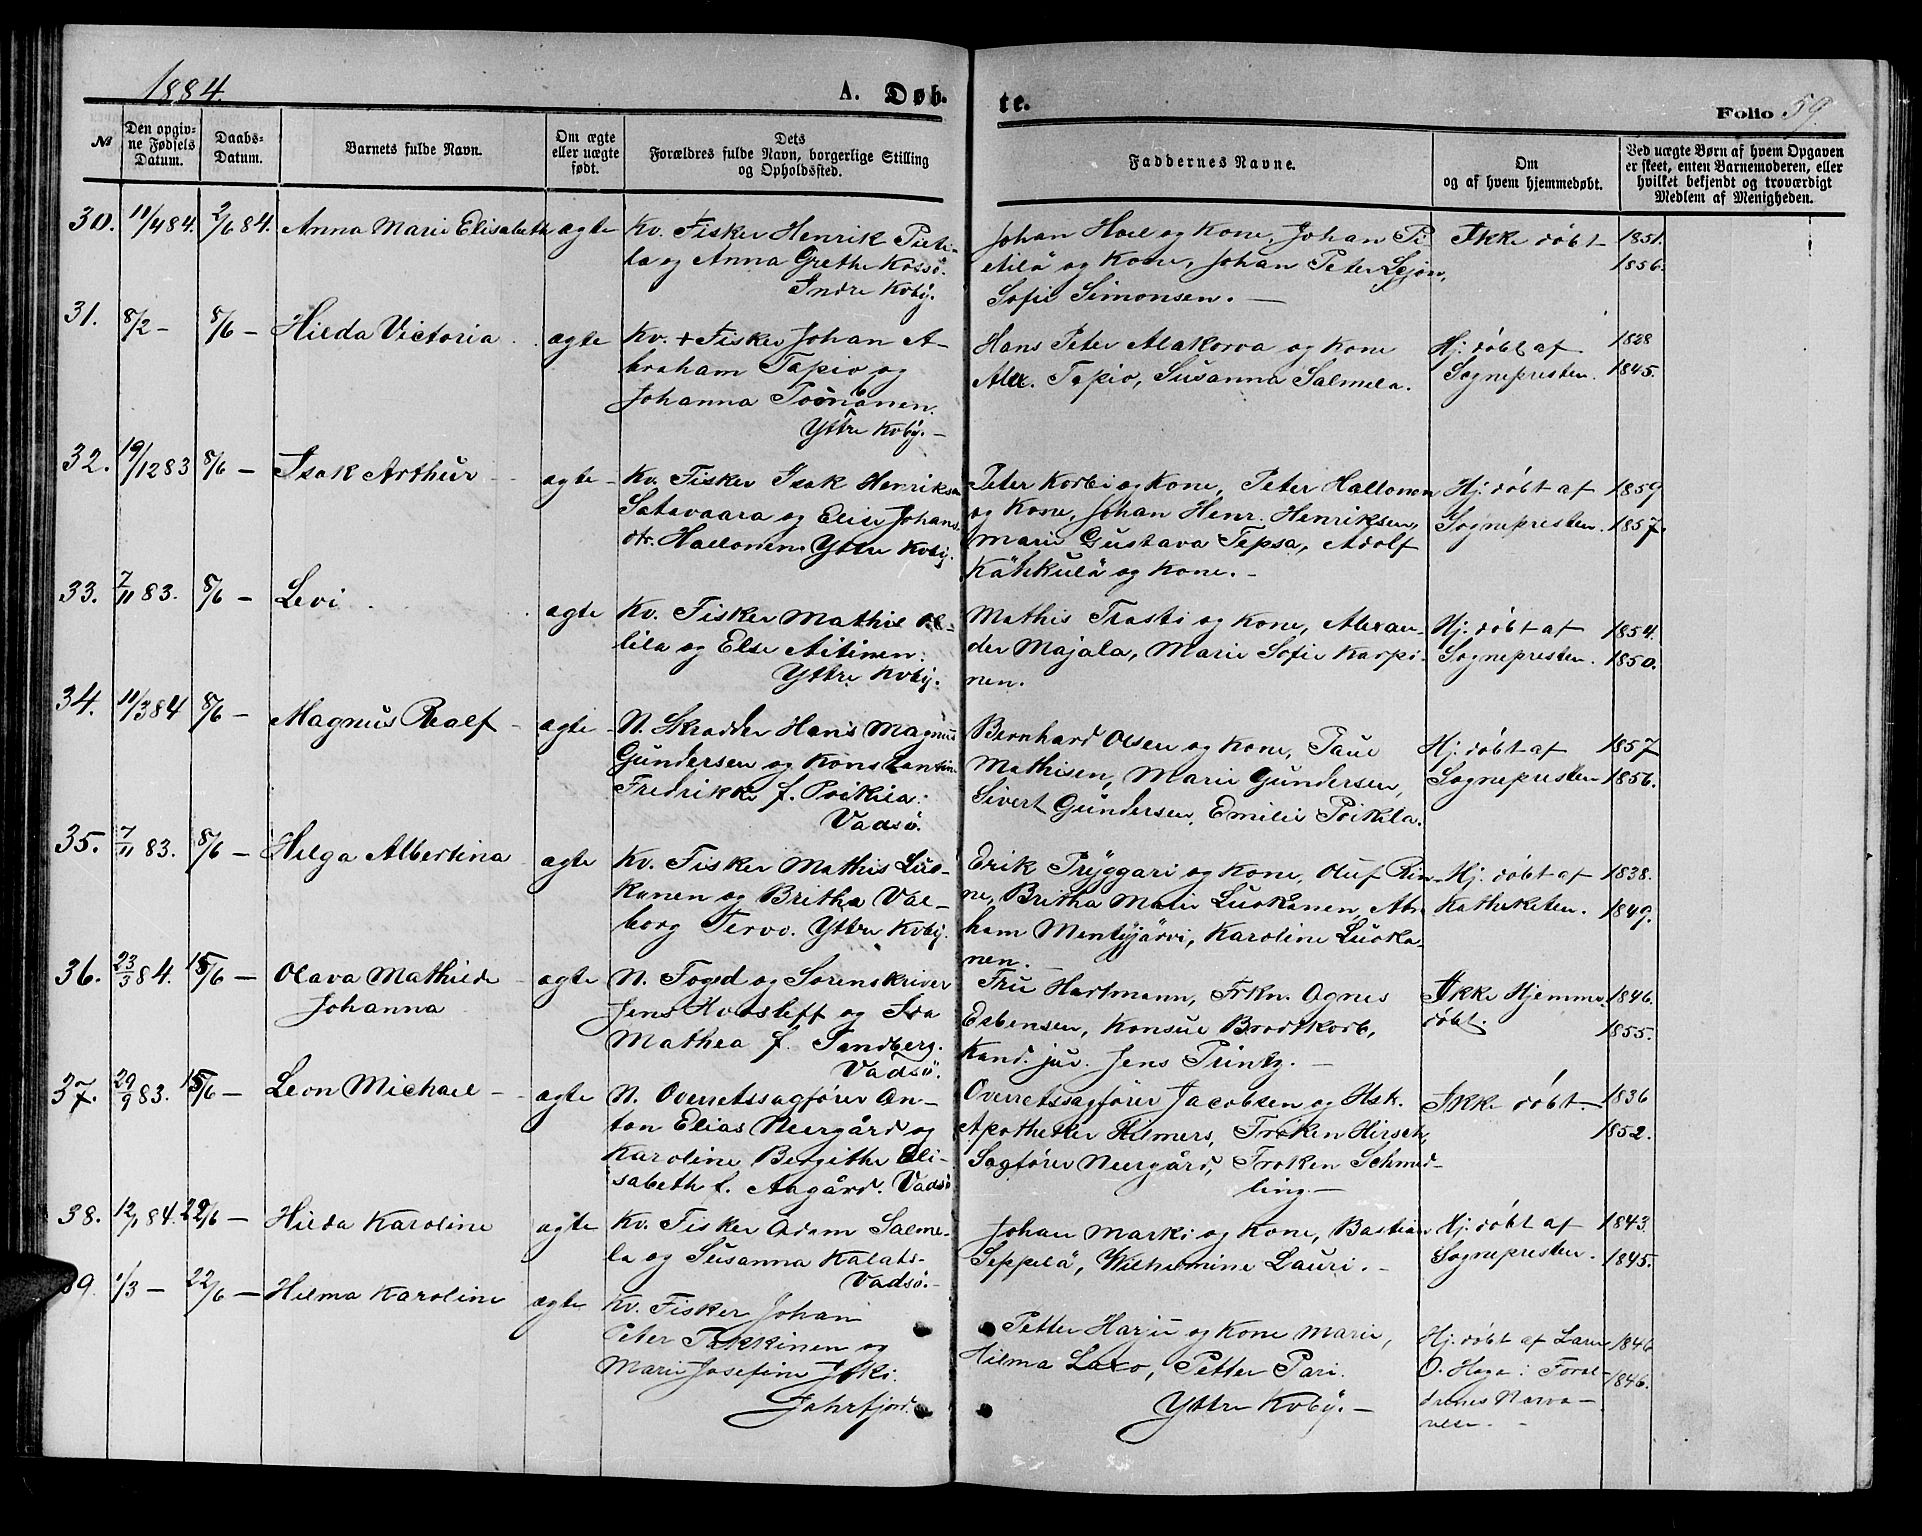 1884.
A. Døb-
te.
Folio 59.
№
Den opgiv-
ne Fødsels
Datum.
Daabs-
Datum.
Barnets fulde Navn.
Om ægte
eller uægte
født.
Dets
Forældres fulde Navn, borgerlige Stilling
og Opholdssted.
Faddernes Navne.
Om
og af hvem hjemmedøbt.
Ved uægte Børn af hvem Opgaven
er skeet, enten Barnemoderen, eller
hvilket bekjendt og troværdigt
Medlem af Menigheden.
30. 11/4 84. 2/6 84. Anna Marie Elisabeth ægte
Kv. Fisker Henrik Pieti-
la og Anna Grethe
Indre Kvby.
Johan Hoel og Kone, Johan Pi
etilä og Kone, Johan Peter
Sofie Simonsen. —
Ikke døbt
1851.
1856.
31. 8/2 — 8/6 — Hilda Victoria ægte
Kv. + Fisker Johan A-
braham Tapio og
Johanna
Yttre Kvby. —
Hans Peter Alakorva og Kone
Alex. Tapio, Susanna Salmela.
Hj. døbt af
Sognepresten.
1828
1845.
32. 19/12 83 8/6 — Isak Arthur ægte
Kv. Fisker Isak Henriksen
Satavaara og Elise Johans-
dtr. Hallonen. Yttre Kvby.
Peter Korbi og Kone, Peter Hallonen
og Kone, Johan Henr. Henriksen,
Marie Gustava Tepsa, Adolf
Kähkulä og Kone. —
Hj. døbt af
Sognepresten.
1859
1857.
33. 7/11 83. 8/6 — Levi ægte
Kv. Fisker Mathis Ol-
lila og Else Aitinen.
Yttre Kvby.
Mathis Trasti og Kone, Alexan-
der Majala, Marie Sofie Karpi-
nen.
Hj. døbt af
Sognepresten.
1854.
1850.
34. 11/3 84 8/6 — Magnus Realf ægte
N. Skrædder Hans Magnus
Gundersen og Konstantin
Fredrikke f. Poikila.
Vadsø.
Bernhard Olsen og Kone, Paul
Mathisen, Marie Gundersen,
Sivert Gundersen, Emilie Poikila.
Hj. døbt af
Sognepresten
1857
1856.
35. 7/11 83. 8/6 — Helga Albertina ægte
Kv. Fisker Mathis Luo-
kanen og Britha Val-
borg Tervo. Yttre Kvby.
Erik Pryggari og Kone, Oluf Rin-
ne, Britha Marie Luokanen, Abra
ham Mentyjärvi, Karoline Luoka-
nen. —
Hj. døbt af
Katheketen.
1838.
1849.
36. 23/3 84. 15/6 — Olava Mathilde
Johanna
ægte
N. Fogd og Sorenskriver
Jens Holsleff og Ida
Mathea f. Sandberg.
Vadsø.
Fru Hartmann, Frkn. Agnes
Esbensen, Konsul Brodtkorb,
Kand. jur. Jens Printz. —
Ikke Hjemme
døbt.
1846.
1855.
37. 29/9 83. 15/6 — Leon Michael — ægte
N. Overretssagfører An-
ton Elias Neergård og
Karoline Bergithe Eli-
sabeth f. Aagård. Vadsø
Overretssagfører Jacobsen og Hsk.
Apotheker Hilmers, Frøken Hirsch,
Sagfører Neergård, Frøken Schmed-
ling. —
Ikke døbt. —
1836
1852.
38. 12/1 84. 22/6 — Hilda Karoline ægte
Kv. Fisker Adam Salme-
la og Susanna Kalats.
Vadsø. —
Johan Marki og Kone, Bastian
Seppelä, Wilhelmine Lauri. —
Hj. døbt af
Sognepresten.
1843.
1845.
39. 1/3 — 22/6 — Hilma Karoline ægte
Kv. Fisker Johan
Peter Takkinen og
Marie Josefine Joki.
Jahrfjord.
Petter Harju og Kone Marie,
Hilma Laxo, Petter Pari.
Yttre Kvby. —
Hj. døbt af Lars
O. Haga i Foræl-
drenes Nærvæ-
relse. —
1846
1846.